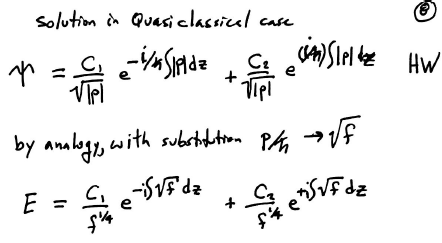 solution in Quasiclassical case ⑧
ψ = C₁/√|p| e^{-i/ħ ∫|p|dz} + C₂/√|p| e^{(i/ħ)∫|p|dz} HW
by analogy, with substitution p/ħ → √f
E = C₁/f^{1/4} e^{-i∫√f dz} + C₂/f^{1/4} e^{+i∫√f dz}